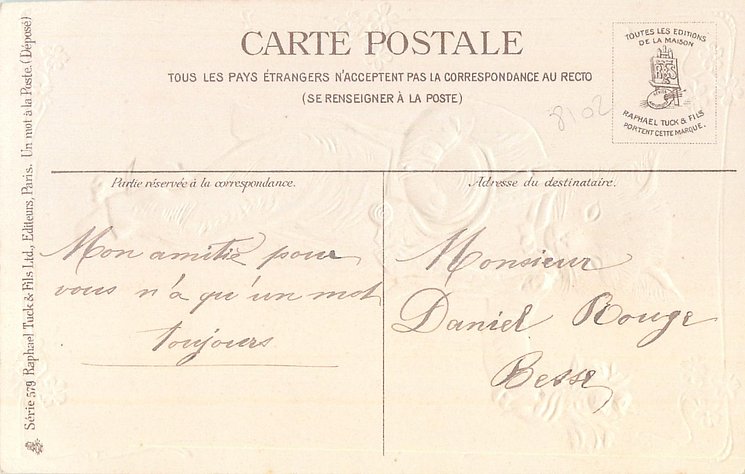 CARTE POSTALE
TOUS LES PAYS ÉTRANGERS N'ACCEPTENT PAS LA CORRESPONDANCE AU RECTO
(SE RENSEIGNER À LA POSTE)
TOUTES LES EDITIONS
DE LA MAISON
RAPHAEL TUCK & FILS
PORTENT CETTE MARQUE.
Partie réservée à la correspondance.
Mon amitié pour
vous n'a qu'un mot
toujours
Adresse du destinataire.
Monsieur
Daniel Rouge
Besse
Série 579 Raphael Tuck & Fils Ltd., Editeurs, Paris. Un mot à la Poste. (Déposé)